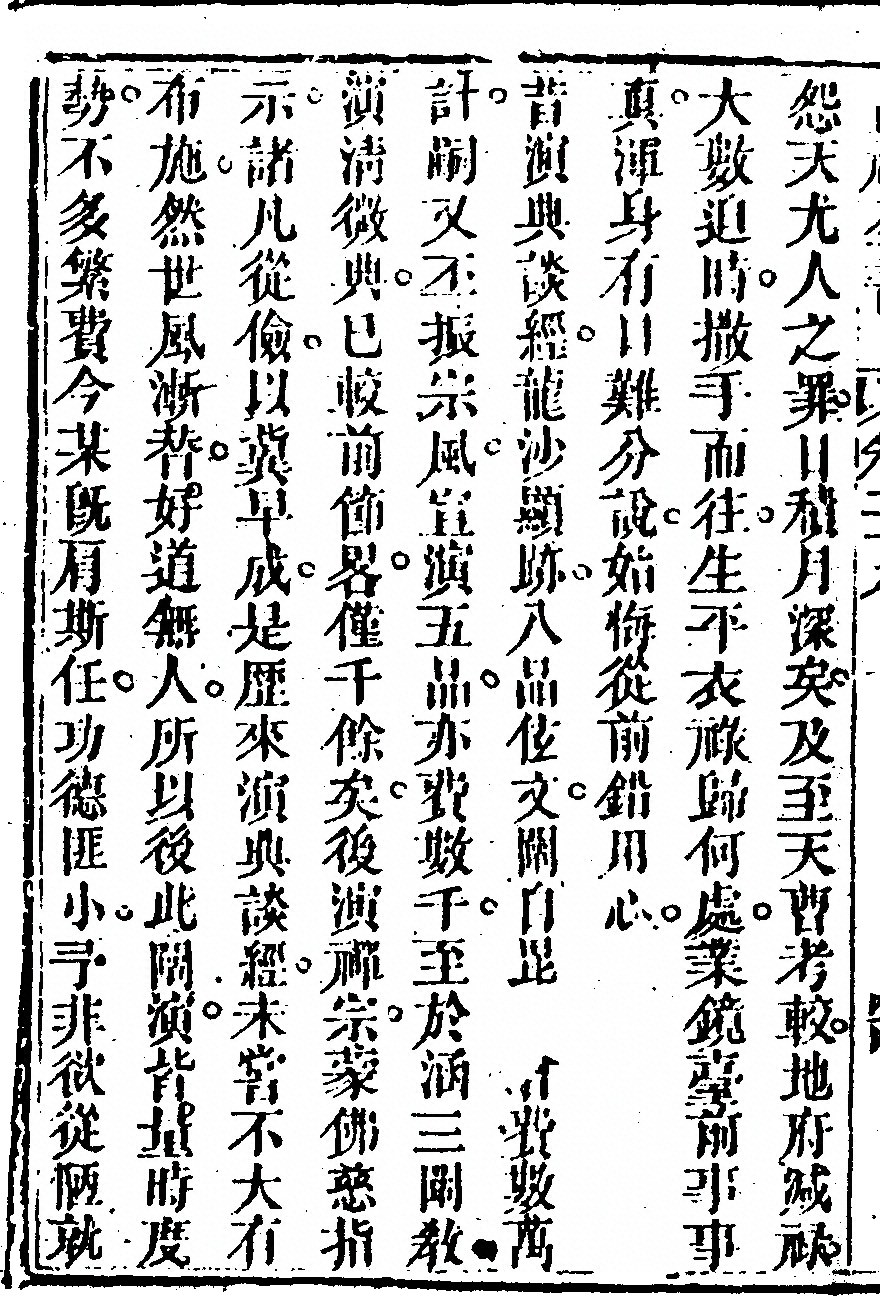 怨天尤人之罪日積月深矣及至天曹考較地府減祿
大數迫時撒手而往生平衣祿歸何處業鏡臺前事事
真渾身有口難分說始悔從前鉛用心
昔演典談經龍沙顯跡八品伭文闡自毘　費數萬
計嗣又丕振宗風宣演五品亦費數千至於涵三闡教
演清微典已較前節畧僅千餘矣後演禪宗蒙佛慈指
示諸凡從儉以冀早成是歷來演典談經未嘗不大有
布施然世風漸替好道無人所以後此闡演皆量時度
勢不多繁費今某既肩斯任功德匪小予非欲從陋就